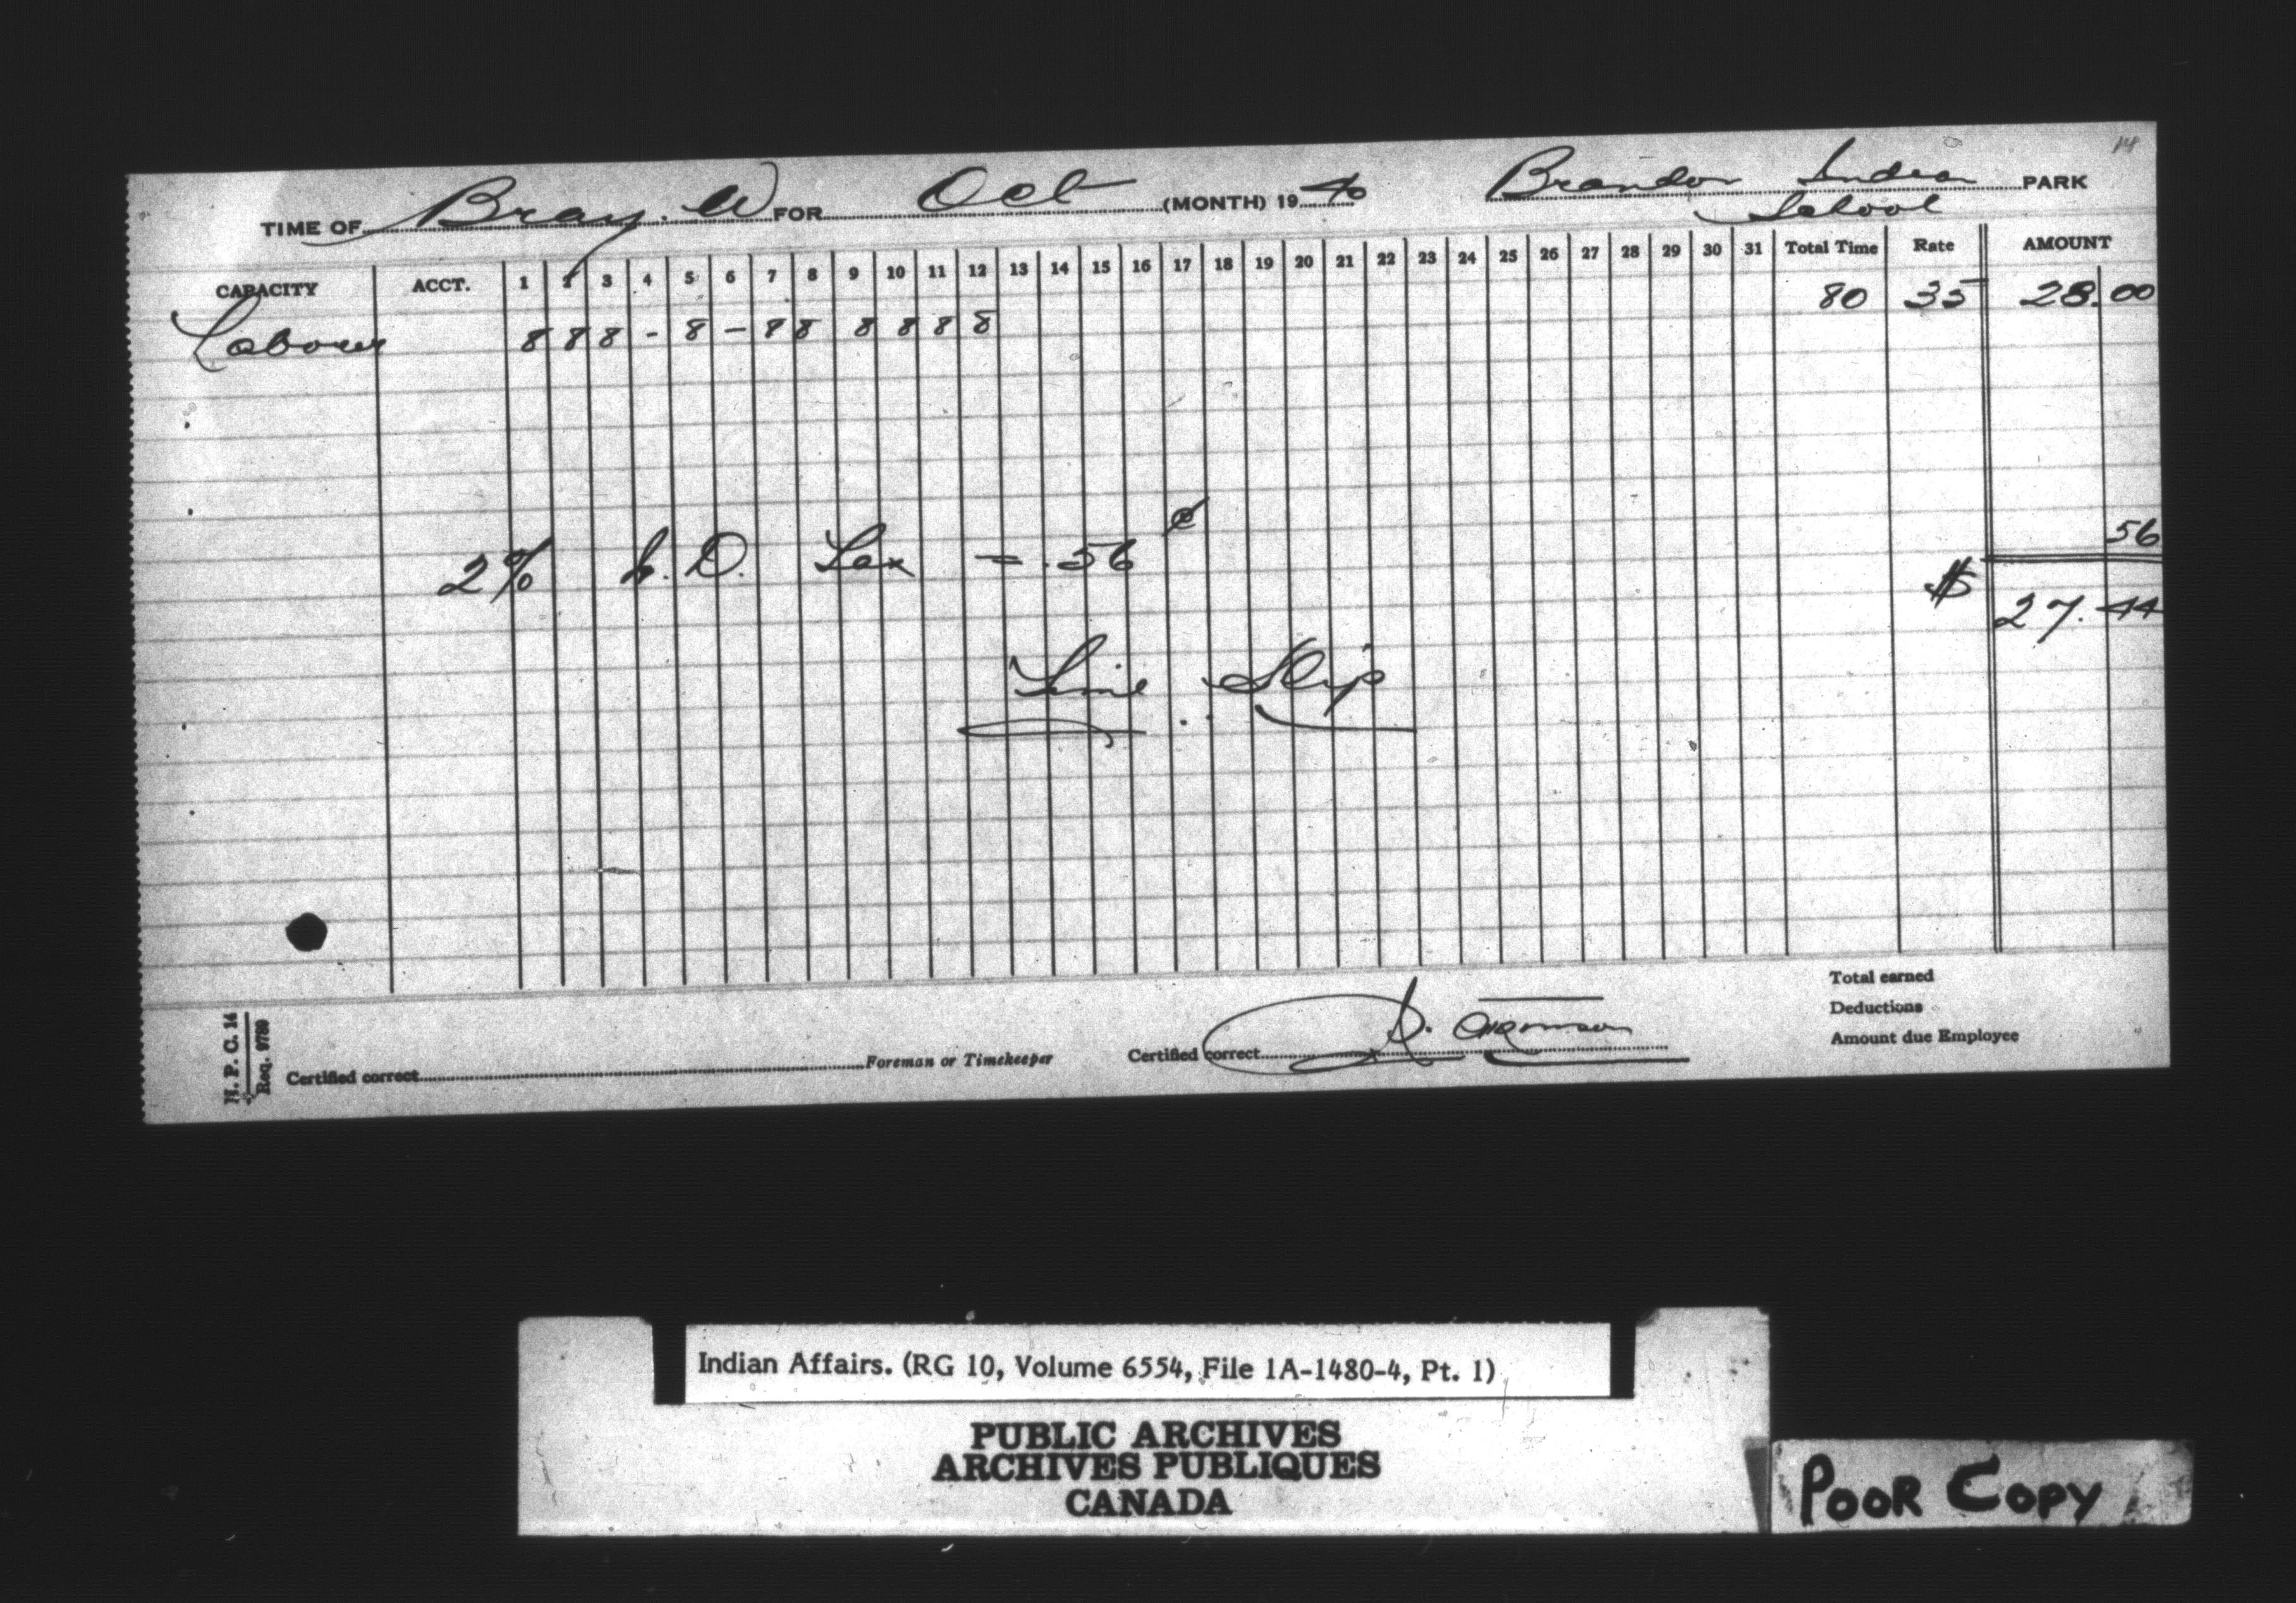 14
TIME OF Bray. W FOR Oct (MONTH) 19 40 Brandon Indian School PARK
CAPACITY ACCT. 1 2 3 4 5 6 7 8 9 10 11 12 13 14 15 16 17 18 19 20 21 22 23 24 25 26 27 28 29 30 31 Total Time Rate AMOUNT
Labourer 8 8 8 - 8 - 8 8 8 8 8 8 80 35 28.00
2% N. D. Tax = .56 ¢ 56
$ 27.44
Time Slip
Total earned
Deductions
Amount due Employee
N. P. C. 14
Req. 9789
Certified correct Foreman or Timekeeper Certified correct
Indian Affairs. (RG 10, Volume 6554, File 1A-1480-4, Pt. 1)
PUBLIC ARCHIVES
ARCHIVES PUBLIQUES
CANADA
POOR COPY